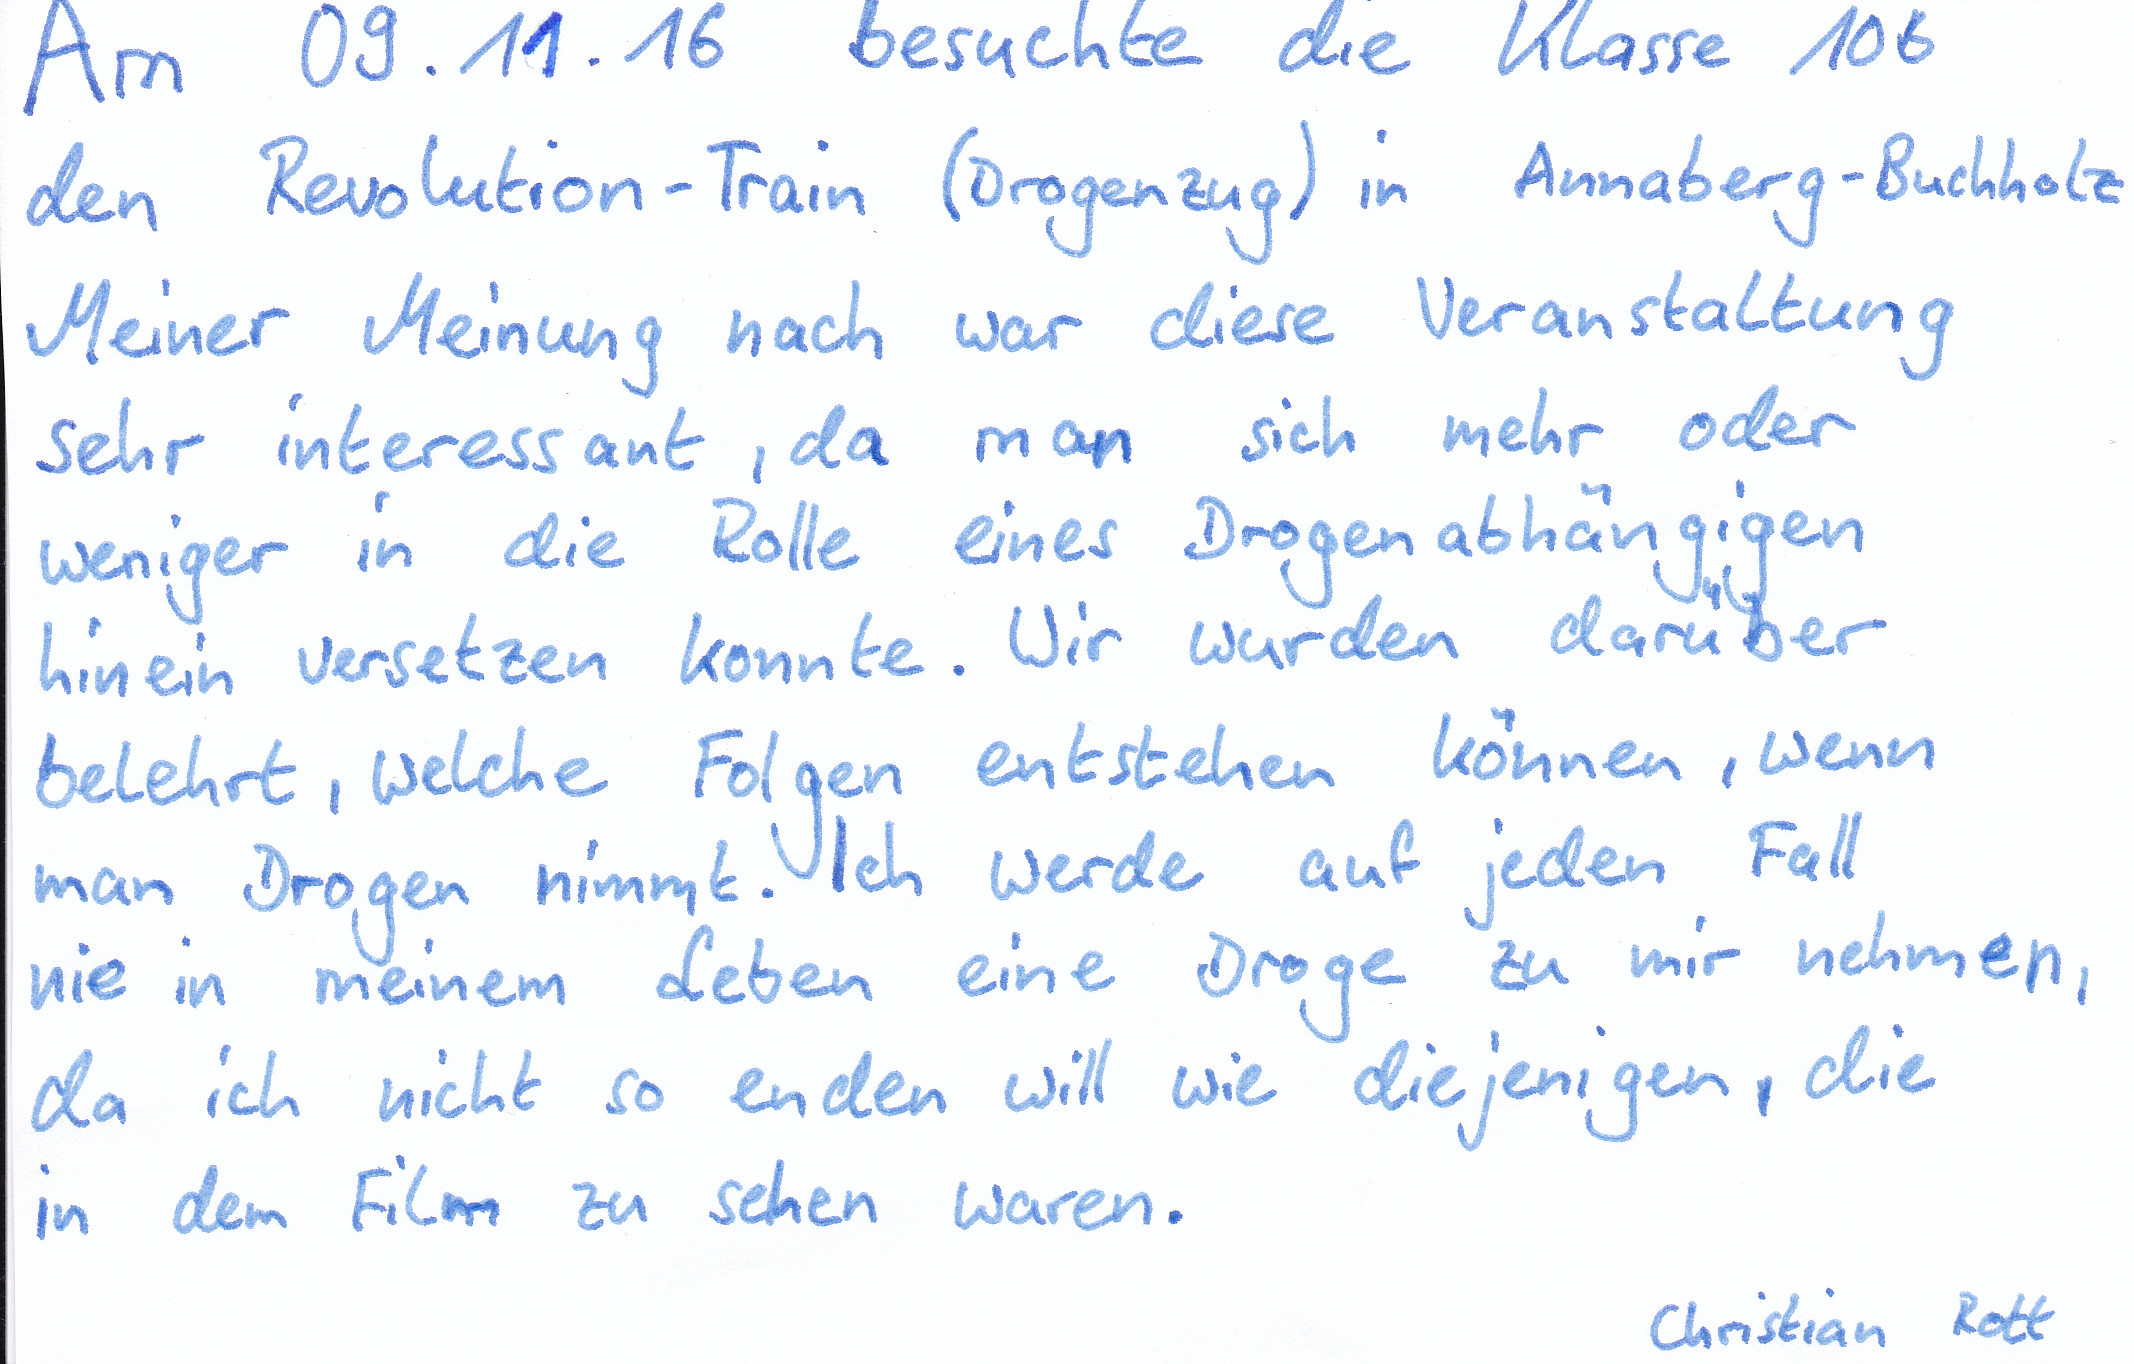 Am 09.11.16 besuchte die Klasse 10b
den Revolution-Train (Drogenzug) in Annaberg-Buchholz
Meiner Meinung nach war diese Veranstaltung
sehr interessant, da man sich mehr oder
weniger in die Rolle eines Drogenabhängigen
hinein versetzen konnte. Wir wurden darüber
belehrt, welche Folgen entstehen können, wenn
man Drogen nimmt. Ich werde auf jeden Fall
nie in meinem Leben eine Droge zu mir nehmen,
da ich nicht so enden will wie diejenigen, die
in dem Film zu sehen waren.
Christian Rott